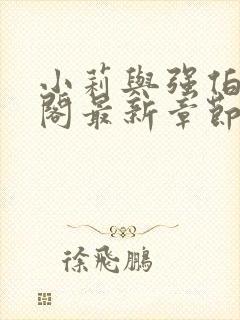 小莉與强伯
閣最新章節
徐飛鵬